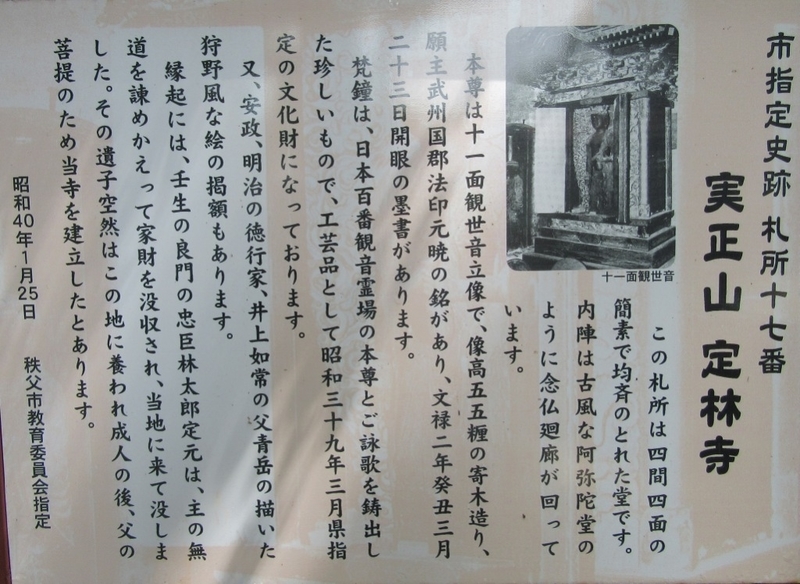 市指定史跡 札所十七番
実正山 定林寺
この札所は四間四面の
簡素で均斉のとれた堂です。
内陣は古風な阿弥陀堂の
ように念仏廻廊が回って
います。
十一面観世音
本尊は十一面観世音立像で、像高五五糎の寄木造り、
願主武州国郡法印元暁の銘があり、文禄二年癸丑三月
二十三日開眼の墨書があります。
梵鐘は、日本百番観音霊場の本尊とご詠歌を鋳出し
た珍しいもので、工芸品として昭和三十九年三月県指
定の文化財になっております。
又、安政、明治の徳行家、井上如常の父青岳の描いた
狩野風な絵の掲額もあります。
縁起には、壬生の良門の忠臣林太郎定元は、主の無
道を諫めかえって家財を没収され、当地に来て没しま
した。その遺子空然はこの地に養われ成人の後、父の
菩提のため当寺を建立したとあります。
昭和40年1月25日 秩父市教育委員会指定